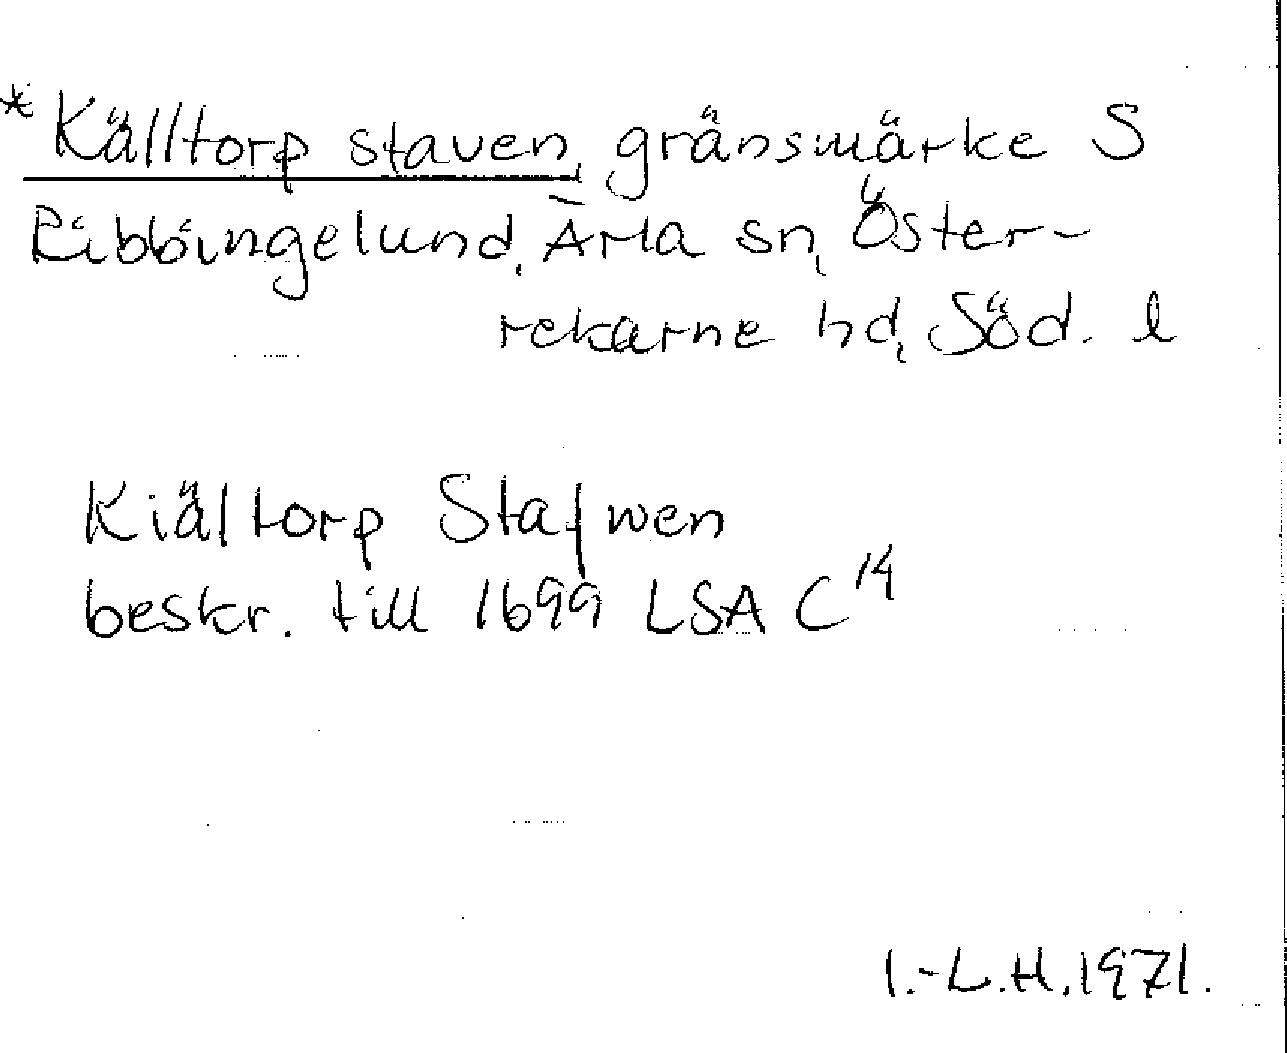 *Källtorp staven, gränsmärke S
Ribbingelund, Ärla sn, Öster-
rekarne hd, Söd. l
Kiältorp Stafwen
beskr. till 1699 LSA C¹⁴
I.-L.H.1971.